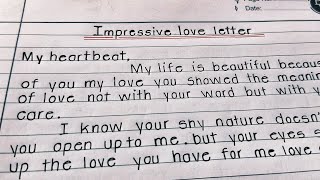 Date:
Impressive love letter
My heartbeat,
My life is beautiful because
of you my love you showed the meaning
of love not with your word but with y
care.
I know your shy nature doesn'
you open up to me. but your eyes s
up the love you have for me love